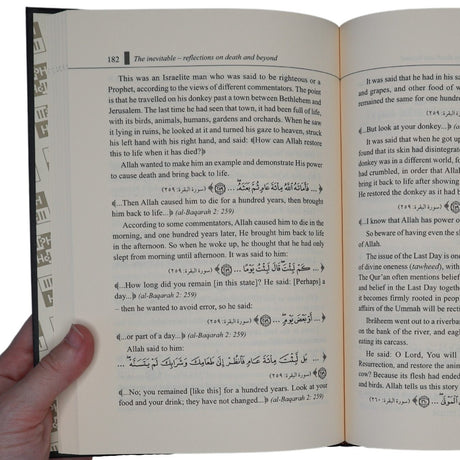 182 The inevitable – reflections on death and beyond
This was an Israelite man who was said to be righteous or a
Prophet, according to the views of different commentators. The point
is that he travelled on his donkey past a town between Bethlehem and
Jerusalem. The last time he had seen that town, it had been full of life,
with its birds, animals, humans, gardens and orchards. When he saw
it lying in ruins, he looked at it and turned his gaze to heaven, struck
his left hand with his right hand, and said: ﴾How can Allah restore
this to life when it has died?﴿
Allah wanted to make him an example and demonstrate His power
to cause death and bring back to life.
﴿... فَأَمَاتَهُ اللَّهُ مِائَةَ عَامٍ ثُمَّ بَعَثَهُۥ ...﴾ (سورة البقرة: ٢٥٩)
﴾...Then Allah caused him to die for a hundred years, then brought
him back to life...﴿ (al-Baqarah 2: 259)
According to some commentators, Allah caused him to die in the
morning, and one hundred years later, He brought him back to life
in the afternoon. So when he woke up, he thought that he had only
slept from morning until afternoon. It was said to him:
﴿... كَمْ لَبِثْتَ قَالَ لَبِثْتُ يَوْمًا ...﴾ (سورة البقرة: ٢٥٩)
﴾...How long did you remain [in this state]? He said: [Perhaps] a
day...﴿ (al-Baqarah 2: 259)
– then he wanted to avoid error, so he said:
﴿... أَوْ بَعْضَ يَوْمٍ ...﴾ (سورة البقرة: ٢٥٩)
﴾...or part of a day...﴿
Allah said to him:
﴿... بَل لَّبِثْتَ مِائَةَ عَامٍ فَانظُرْ إِلَىٰ طَعَامِكَ وَشَرَابِكَ لَمْ يَتَسَنَّهْ ...﴾
(سورة البقرة: ٢٥٩)
﴾...No; you remained [like this] for a hundred years. Look at your
food and your drink; they have not changed...﴿ (al-Baqarah 2: 259)
It was said that he had in his sa
and grapes, and other food of w
remained the same for one hundre
﴾...But look at your donkey...﴿
It was said that when he got up
found that its skin had disintegrat
donkey was in a different world, fo
had crumbled, in order that Allah
bring back to life after something
He restored the donkey as it had b
I know that Allah has power o
So heaven is by the seven he
of Allah.
The issue of the Last Day is one
of divine oneness (tawheed), with
The Qur'an often mentions belief
and belief in the Last Day together
it becomes firmly rooted in people
affairs of the Ummah will be rectif
Ibrâheem went out to a riverbar
on the bank of the river, and eagl
eating its carcass.
He said: O Lord, You will
Resurrection, and restore the anima
Because its flesh had ended
and birds. Allah tells us this story
(سورة البقرة: ٢٦٠)